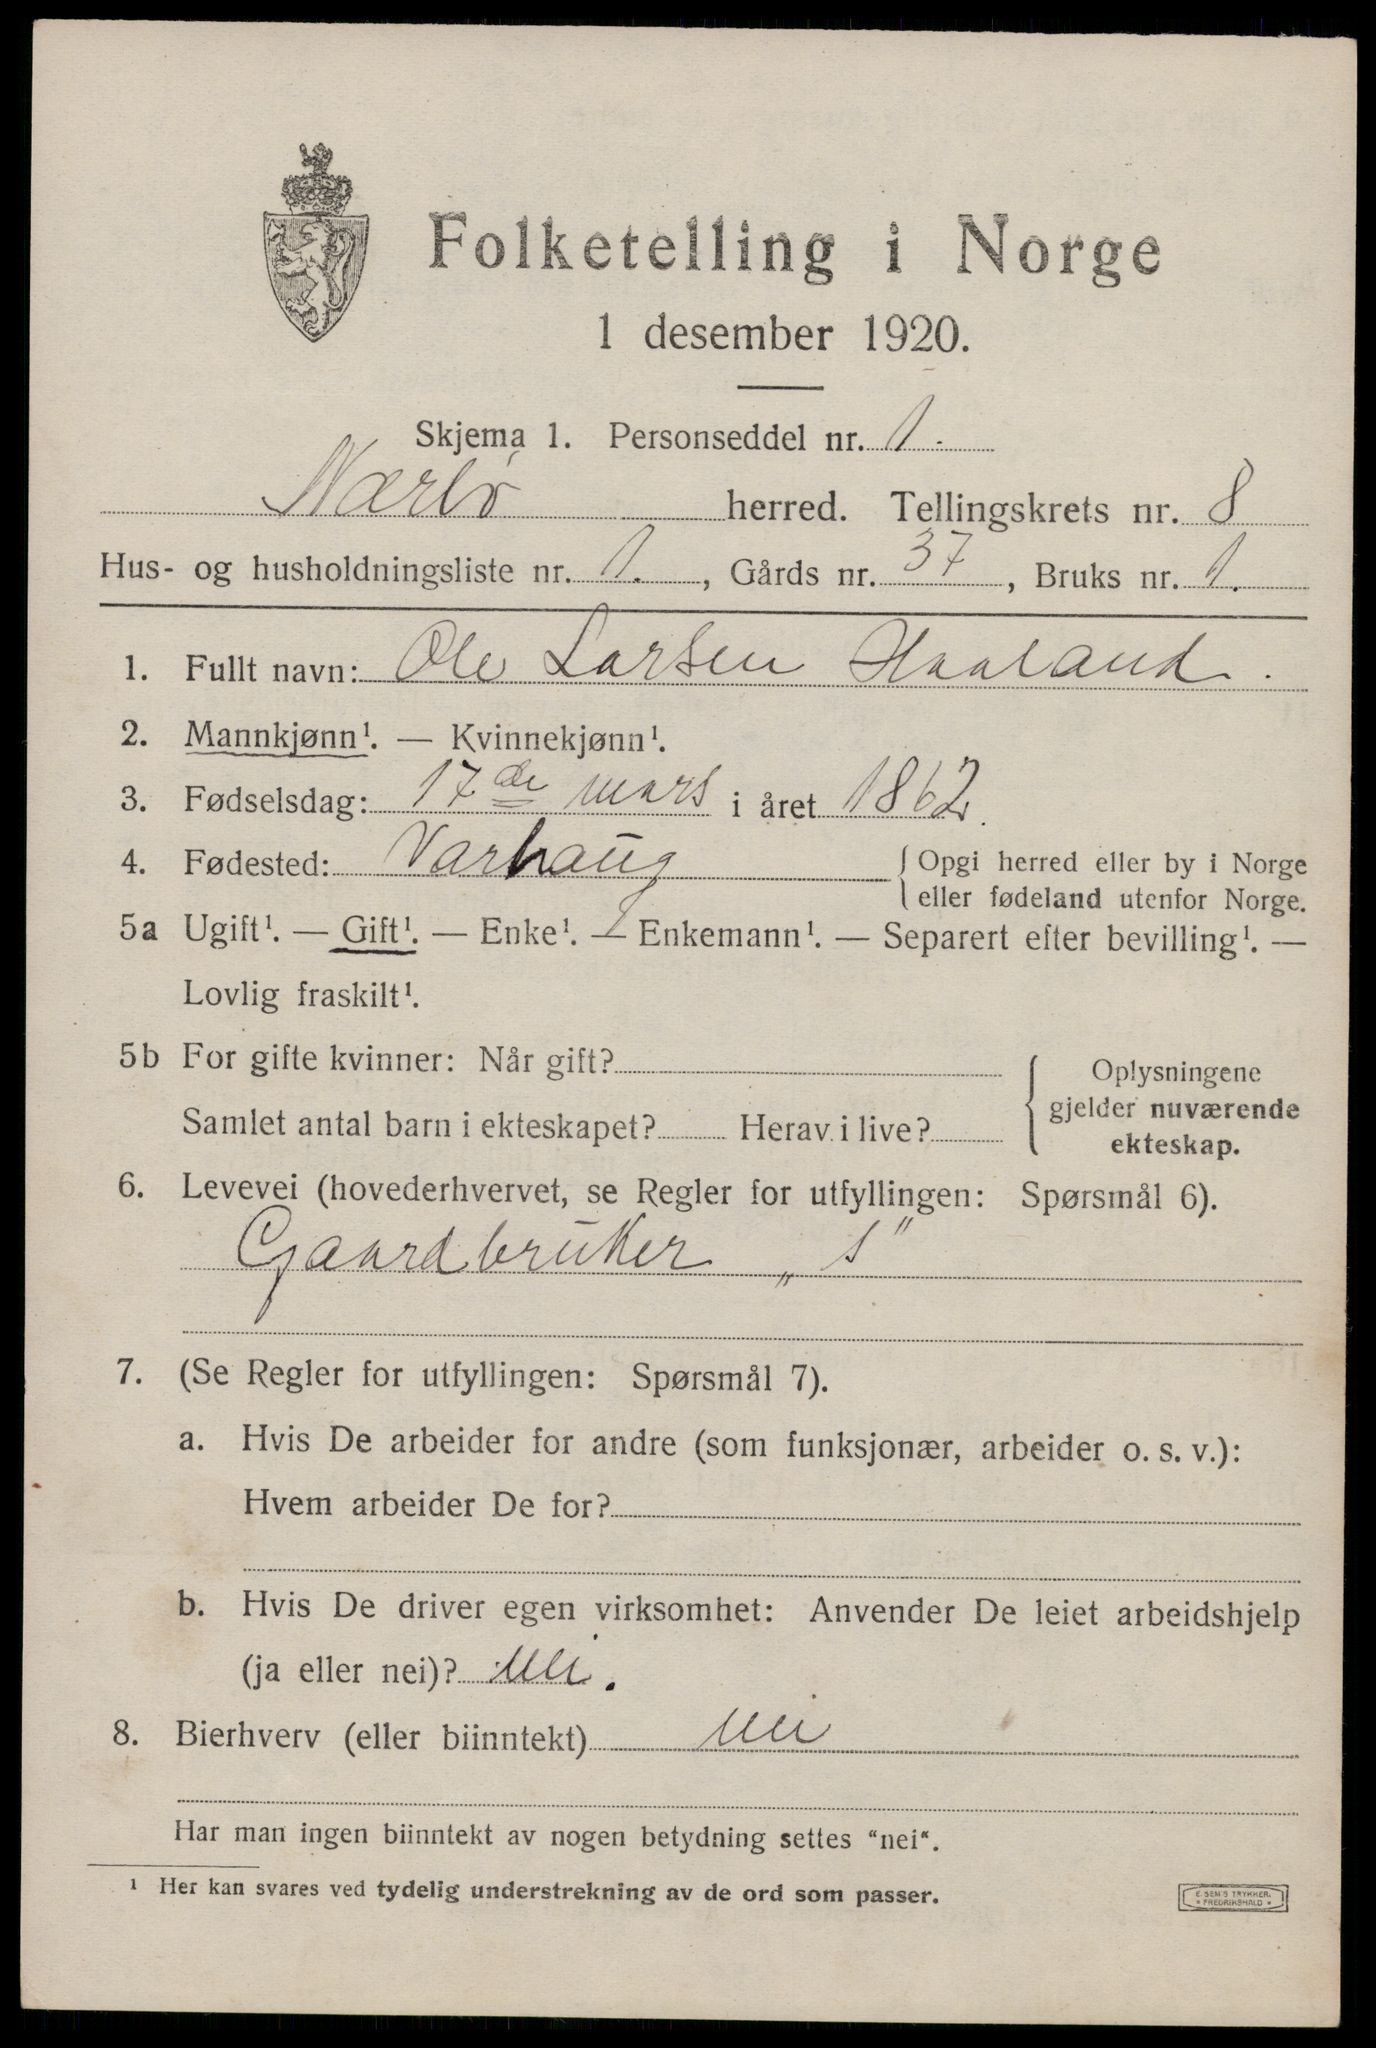 Folketelling i Norge
1 desember 1920.
Skjema 1. Personseddel nr. 1.
Nærbø herred. Tellingskrets nr. 8
Hus- og husholdningsliste nr. 1., Gårds nr. 37, Bruks nr. 1.
1. Fullt navn: Ole Larsen Haaland.
2. Mannkjønn¹. — Kvinnekjønn¹.
3. Fødselsdag: 17de mars i året 1862.
4. Fødested: Varhaug { Opgi herred eller by i Norge
eller fødeland utenfor Norge.
5a Ugift¹. — Gift¹. — Enke¹. — Enkemann¹. — Separert efter bevilling¹. —
Lovlig fraskilt¹.
5b For gifte kvinner: Når gift?
Samlet antal barn i ekteskapet? Herav i live?
Oplysningene
gjelder nuværende
ekteskap.
6. Levevei (hovederhvervet, se Regler for utfyllingen: Spørsmål 6).
Gaardbruker „s”
7. (Se Regler for utfyllingen: Spørsmål 7).
a. Hvis De arbeider for andre (som funksjonær, arbeider o. s. v.):
Hvem arbeider De for?
b. Hvis De driver egen virksomhet: Anvender De leiet arbeidshjelp
(ja eller nei)? nei.
8. Bierhverv (eller biinntekt) nei
Har man ingen biinntekt av nogen betydning settes “nei“.
¹ Her kan svares ved tydelig understrekning av de ord som passer.
E. SEM'S TRYKKER.
* FREDRIKSHALD *